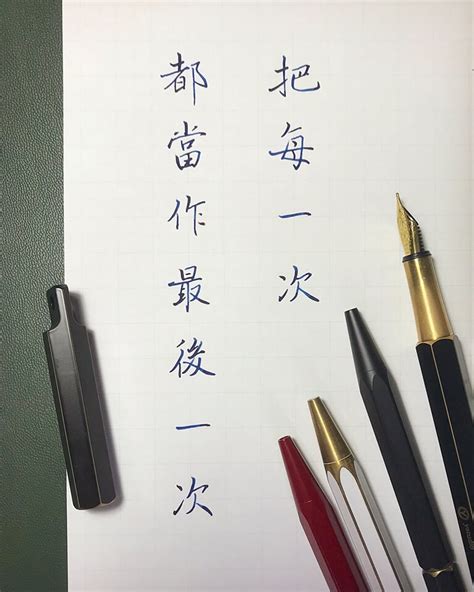 把每一次
都當作最後一次